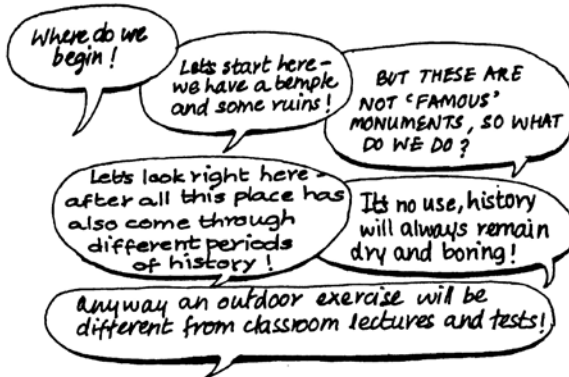 Where do we
begin!
Let's start here-
we have a temple
and some ruins!
BUT THESE ARE
NOT 'FAMOUS'
MONUMENTS, SO WHAT
DO WE DO?
Let's look right here-
after all this place has
also come through
different periods
of history!
It's no use, history
will always remain
dry and boring!
anyway an outdoor exercise will be
different from classroom lectures and tests!